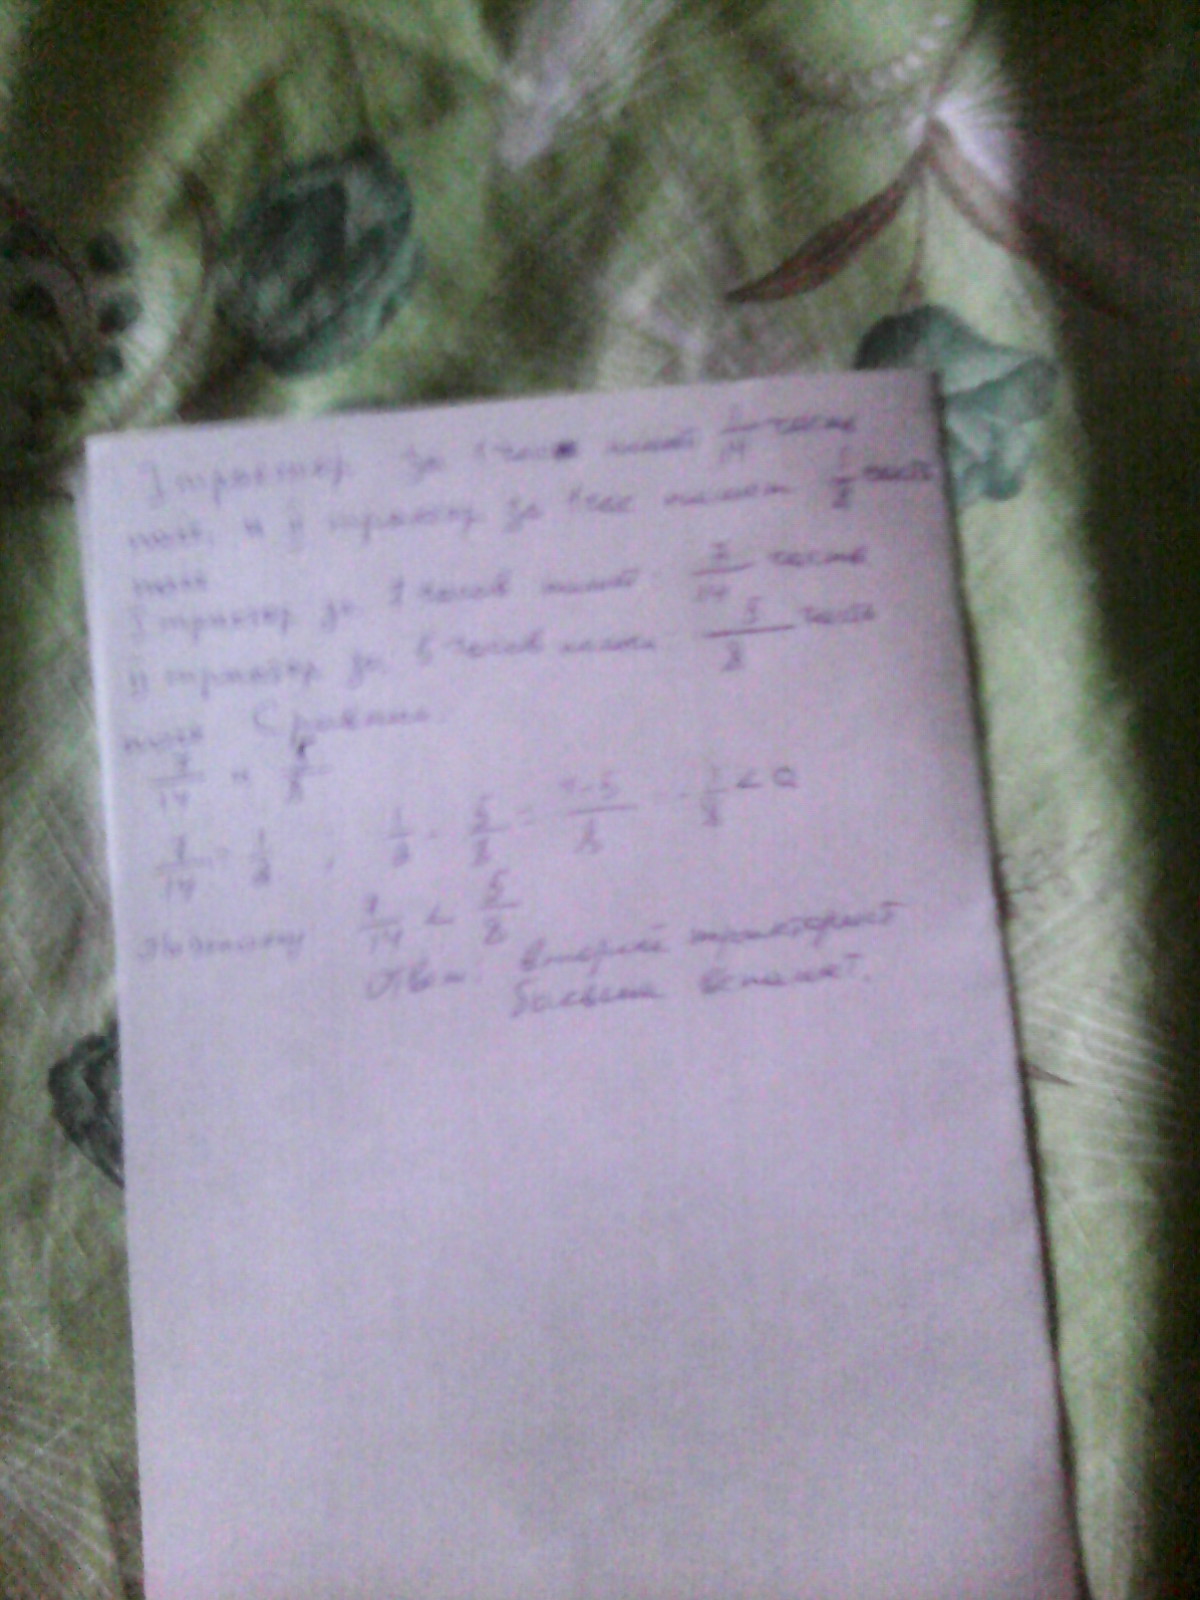 I трактор за 1 час пашет 1/14 часть
поля, а II трактор за 1 час пашет 1/8 часть
поля
I трактор за 7 часов пашет 7/14 часть
II трактор за 5 часов пашет 5/8 часть
поля Сравним.
7/14 и 5/8
7/14 = 1/2 , 1/2 - 5/8 = 4-5/8 = -1/8 < 0
Поэтому 7/14 < 5/8
Ответ: второй тракторист
больше вспашет.